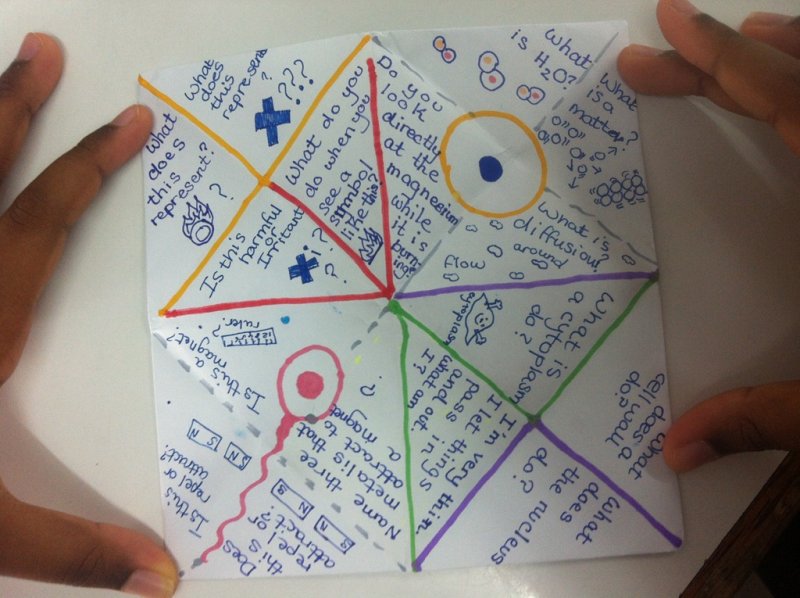 What
does
this
represent
?
???
What
does
this
represent?
?
What do you
do when you
see a
symbol
like this?
Is this
harmful
or
Irritant
i
?
Do you
look
directly
at the
magnesium
while
it is
burning?
What
is H2O?
What
is a
matter?
What is
diffusion?
around
flow
What is
a cytoplasm
do?
cytoplasm
What
cell does a
wall
do?
What
does
the nucleus
do?
I'm very thin.
I let things
pass in
and out
what am
I?
Is this a
magnet?
ruler?
Name three
metals that
attract to
a magnet
?
Is this
repel or
attract?
N S
S N
Does
this
repel or
attract?
S N
N S